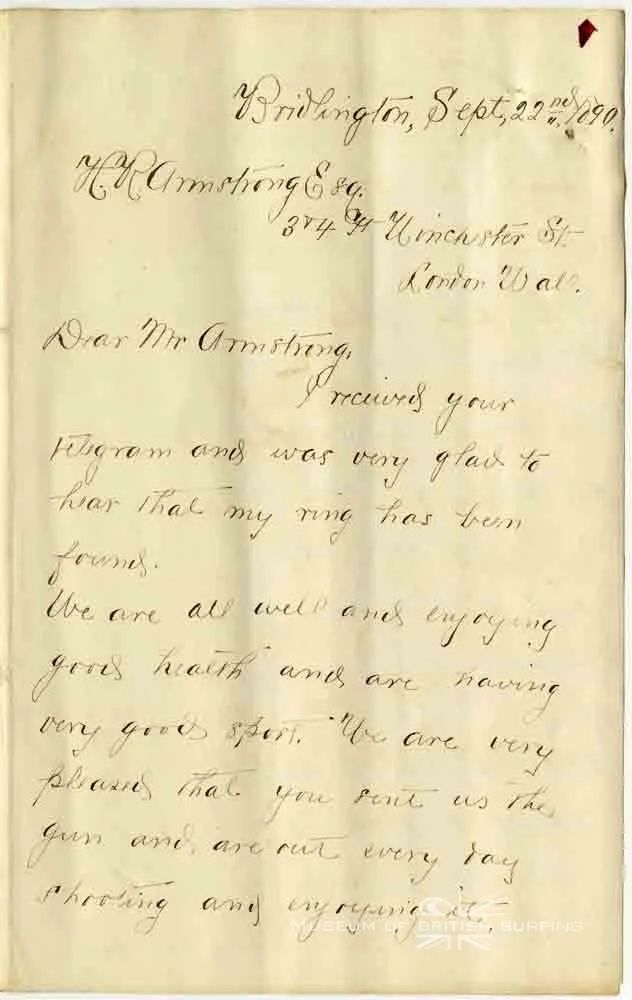 Bridlington, Sept, 22nd, 1890.
H. R. Armstrong Esq.
3 & 4 Gt Winchester St.
London Wall.
Dear Mr Armstrong,
I received your
telegram and was very glad to
hear that my ring has been
found.
We are all well and enjoying
good health and are having
very good sport. We are very
pleased that you sent us the
gun and, are out every day
shooting and enjoying it.
MUSEUM OF BRITISH SURFING